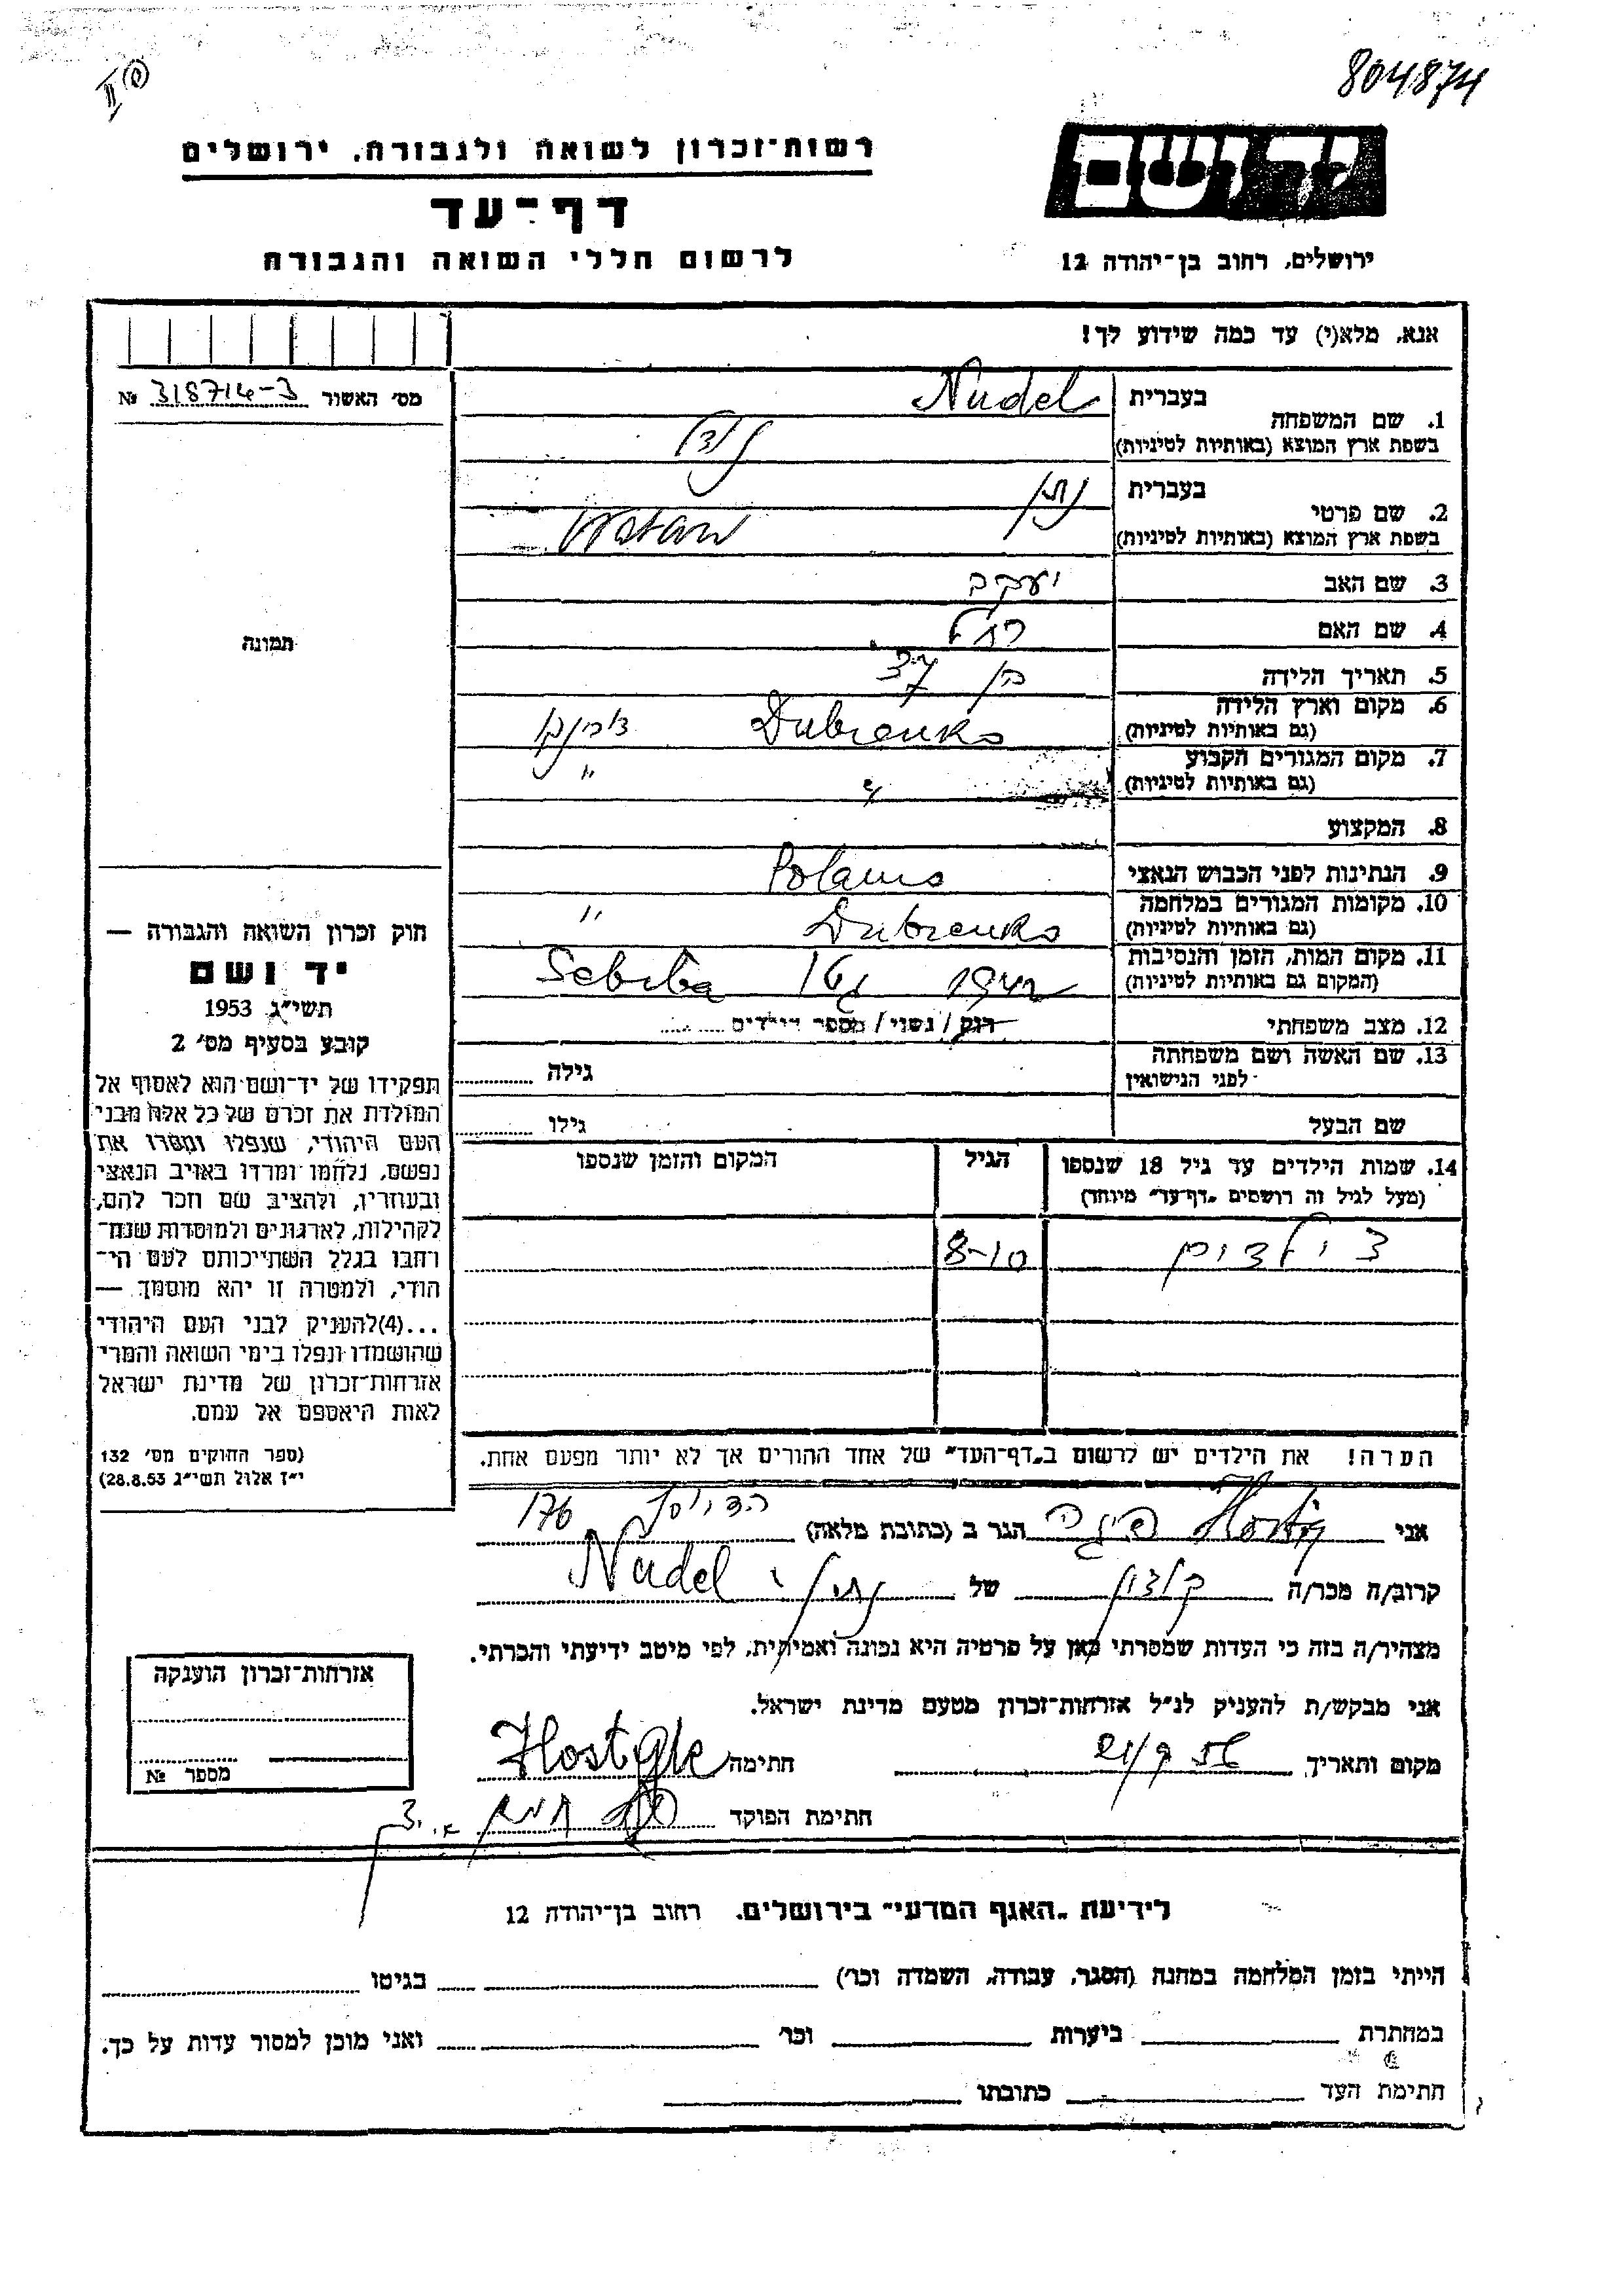 804874
יד ושם
רשות־זכרון לשואה ולגבורה, ירושלים
דף־עד
לרשום חללי השואה והגבורה
ירושלים, רחוב בן־יהודה 12
אנא, מלא(י) עד כמה שידוע לך!
מס׳ האשור 318714-3 №
1. שם המשפחה בעברית Nudel
בשפת ארץ המוצא (באותיות לטיניות)
2. שם פרטי בעברית נתן
בשפת ארץ המוצא (באותיות לטיניות) Natan
3. שם האב יעקב
4. שם האם רחל
5. תאריך הלידה בן 37
6. מקום וארץ הלידה
(גם באותיות לטיניות) Dubrenka
7. מקום המגורים הקבוע
(גם באותיות לטיניות) " "
8. המקצוע
9. הנתינות לפני הכבוש הנאצי
10. מקומות המגורים במלחמה
(גם באותיות לטיניות) Dubrenka "
11. מקום המות, הזמן והנסיבות
(המקום גם באותיות לטיניות) 1942
12. מצב משפחתי רוק / נשוי / מספר הילדים
13. שם האשה ושם משפחתה
לפני הנישואין גילה
שם הבעל גילו
14. שמות הילדים עד גיל 18 שנספו הגיל המקום והזמן שנספו
(מעל לגיל זה רושמים „דף־עד״ מיוחד)
ילדים 8-10
הערה! את הילדים יש לרשום ב„דף־העד״ של אחד ההורים אך לא יותר מפעם אחת.
תמונה
חוק זכרון השואה והגבורה —
יד ושם
תשי״ג 1953
קובע בסעיף מס׳ 2
תפקידו של יד־ושם הוא לאסוף אל
המולדת את זכרם של כל אלה מבני
העם היהודי, שנפלו ומסרו את
נפשם, נלחמו ומרדו באויב הנאצי
ובעוזריו, ולהציב שם וזכר להם,
לקהילות, לארגונים ולמוסדות שנח־
רחבו בגלל השתייכותם לעם הי־
הודי, ולמטרה זו יהא מוסמך —
...(4)להעניק לבני העם היהודי
שהושמדו ונפלו בימי השואה והמרי
אזרחות־זכרון של מדינת ישראל
לאות היאספם אל עמם.
(ספר החוקים מס׳ 132
י״ז אלול תשי״ג 28.8.53)
אני הגר ב (כתובת מלאה) 176
קרוב/ה מכר/ה של Nudel
מצהיר/ה בזה כי העדות שמסרתי כאן על פרטיה היא נכונה ואמיתית, לפי מיטב ידיעתי והכרתי.
אני מבקש/ת להעניק לנ״ל אזרחות־זכרון מטעם מדינת ישראל.
מקום ותאריך חתימה
חתימת הפוקד
אזרחות־זכרון הוענקה
מספר №
לידיעת „האגף המדעי״ בירושלים. רחוב בן־יהודה 12
הייתי בזמן המלחמה במחנה (הסגר, עבודה, השמדה וכו׳) בגיטו
במחתרת ביערות וכו׳ ואני מוכן למסור עדות על כך.
חתימת העד כתובתו